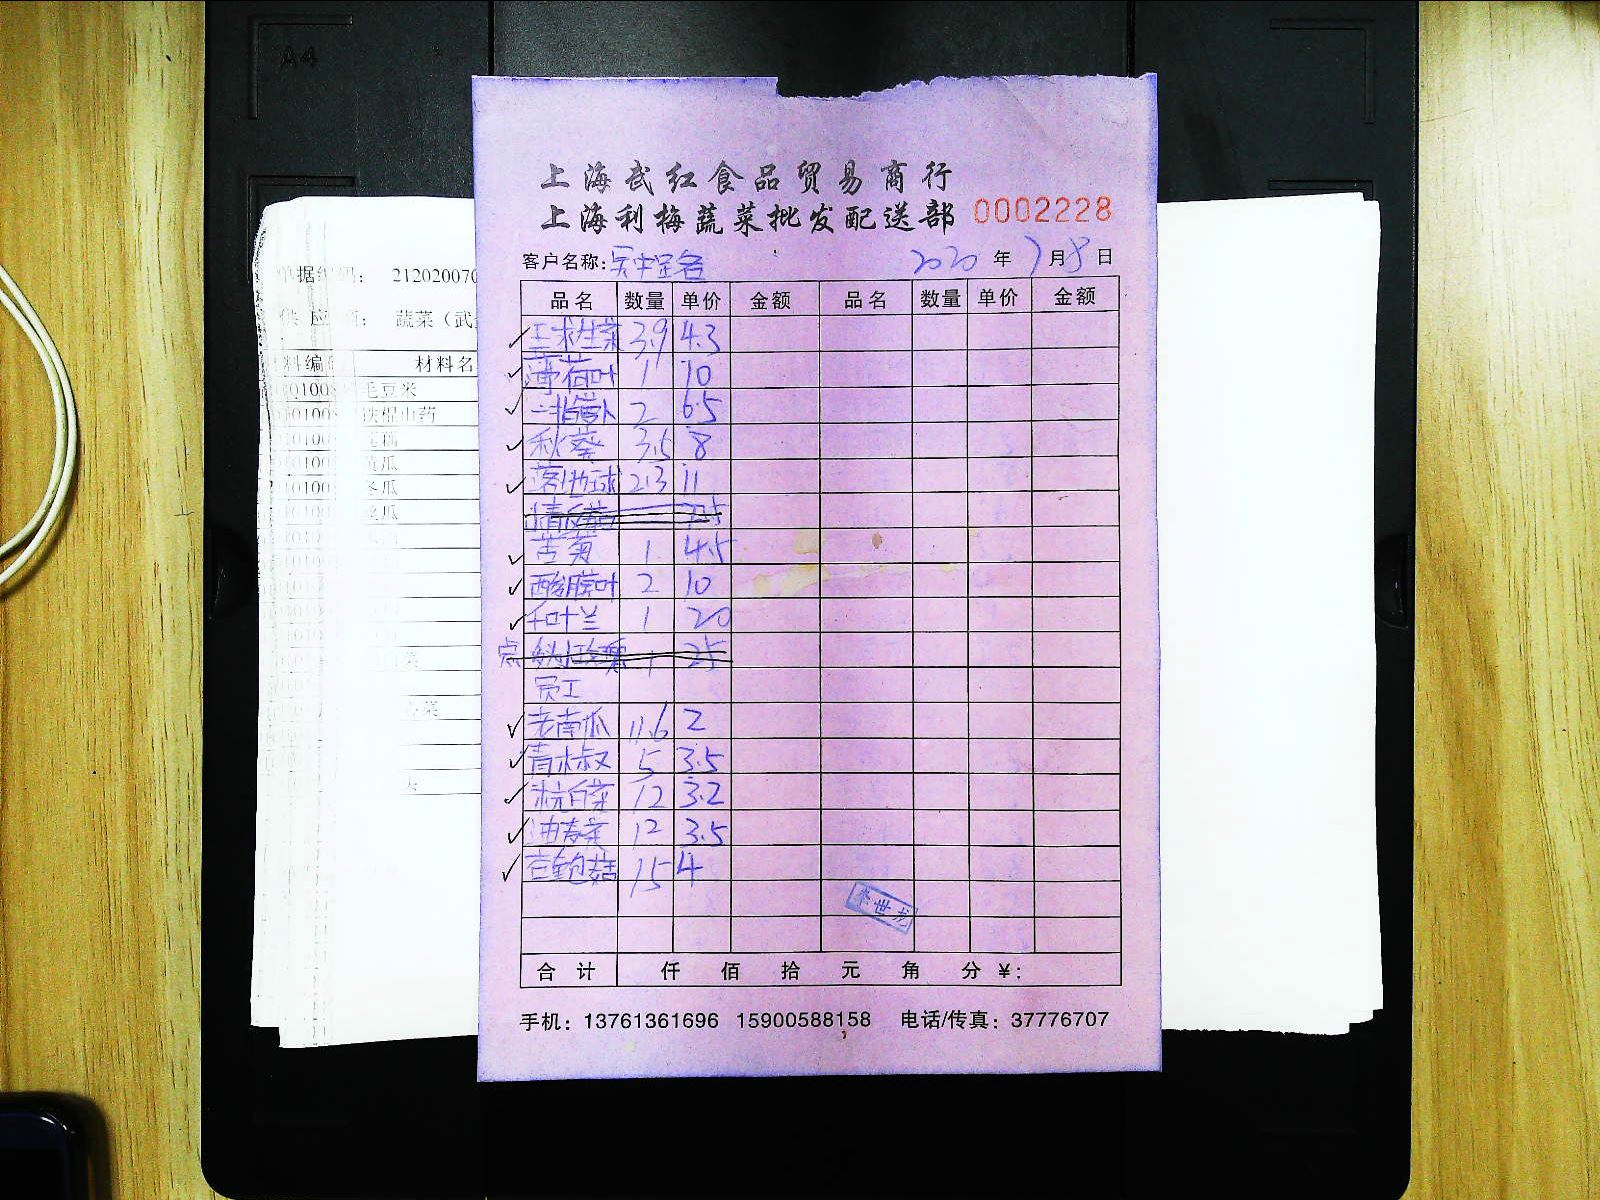 上海武红食品贸易商行
上海利梅蔬菜批发配送部 0002228
客户名称: 2020 年 7 月 8 日
品名 数量 单价 金额 品名 数量 单价 金额
球生菜 3.9 4.3
薄荷叶 1 10
2 6.5
秋葵 3.5 8
落地球 2.3 11
苦菊 1 4.5
酸膜叶 2 10
千叶兰 1 20
点 1 25
员工
老南瓜 11.6 2
青木叔 5 3.5
杭白菜 12 3.2
油麦菜 12 3.5
杏鲍菇 15 4
李世龙
合计 仟 佰 拾 元 角 分 ¥:
手机: 13761361696 15900588158 电话/传真: 37776707
A4
单据编码: 212020070
供应商: 蔬菜（武
料编 材料名
01008 毛豆米
01008 铁棍山药
瓜
冬瓜
丝瓜
菜
菜